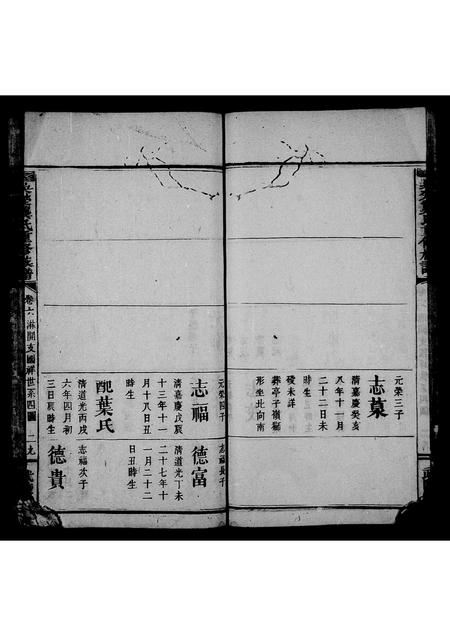 元榮三子
志菓
清嘉慶癸亥
八年十一月
二十二日未
時生
歿未詳
葬亭子嶺
形坐北向南
元榮四子
志福
清嘉慶戊辰
十三年十一
月十八日丑
時生
配葉氏
清道光丙戌
六年四月初
三日辰時生
志福長子
德富
清道光丁未
二十七年十
一月二十二
日丑時生
志福次子
德貴
卷六
國祥世系四圖